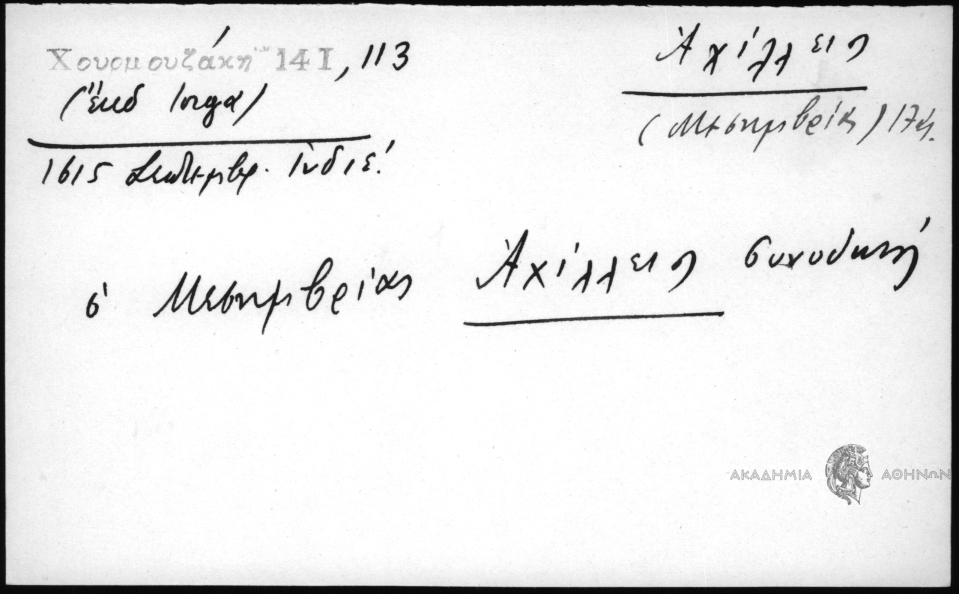 Χουρμουζάκη 141, 113
(ἔκδ Ἰοργα)
1615 Σεπτεμβρ. Ἰνδ ιε΄.
Ἀχίλλειος
(Μεσημβρίας) 17 αἰ.
ὁ Μεσημβρίας Ἀχίλλειος συνοδικῇ
ΑΚΑΔΗΜΙΑ ΑΘΗΝΩΝ